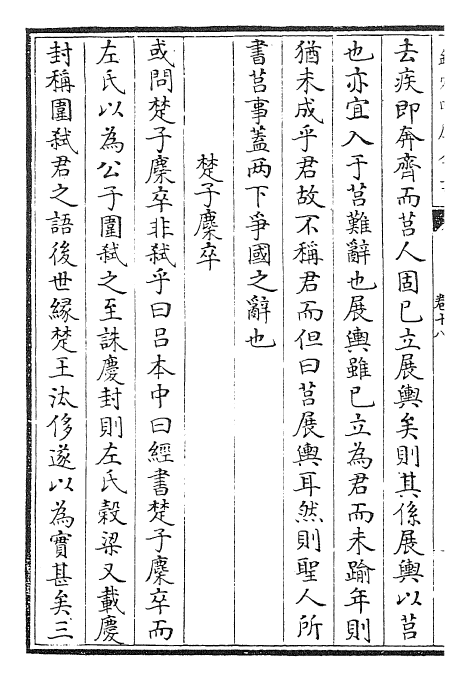 卷十八
去疾即奔齊而莒人固已立展輿矣則其係展輿以莒
也亦宜入于莒難辭也展輿雖已立為君而未踰年則
猶未成乎君故不稱君而但曰莒展輿耳然則聖人所
書莒事蓋两下爭國之辭也
楚子麋卒
或問楚子麋卒非弑乎曰吕本中曰經書楚子麋卒而
左氏以為公子圍弑之至誅慶封則左氏穀梁又載慶
封稱圍弑君之語後世緣楚王汰侈遂以為實甚矣三